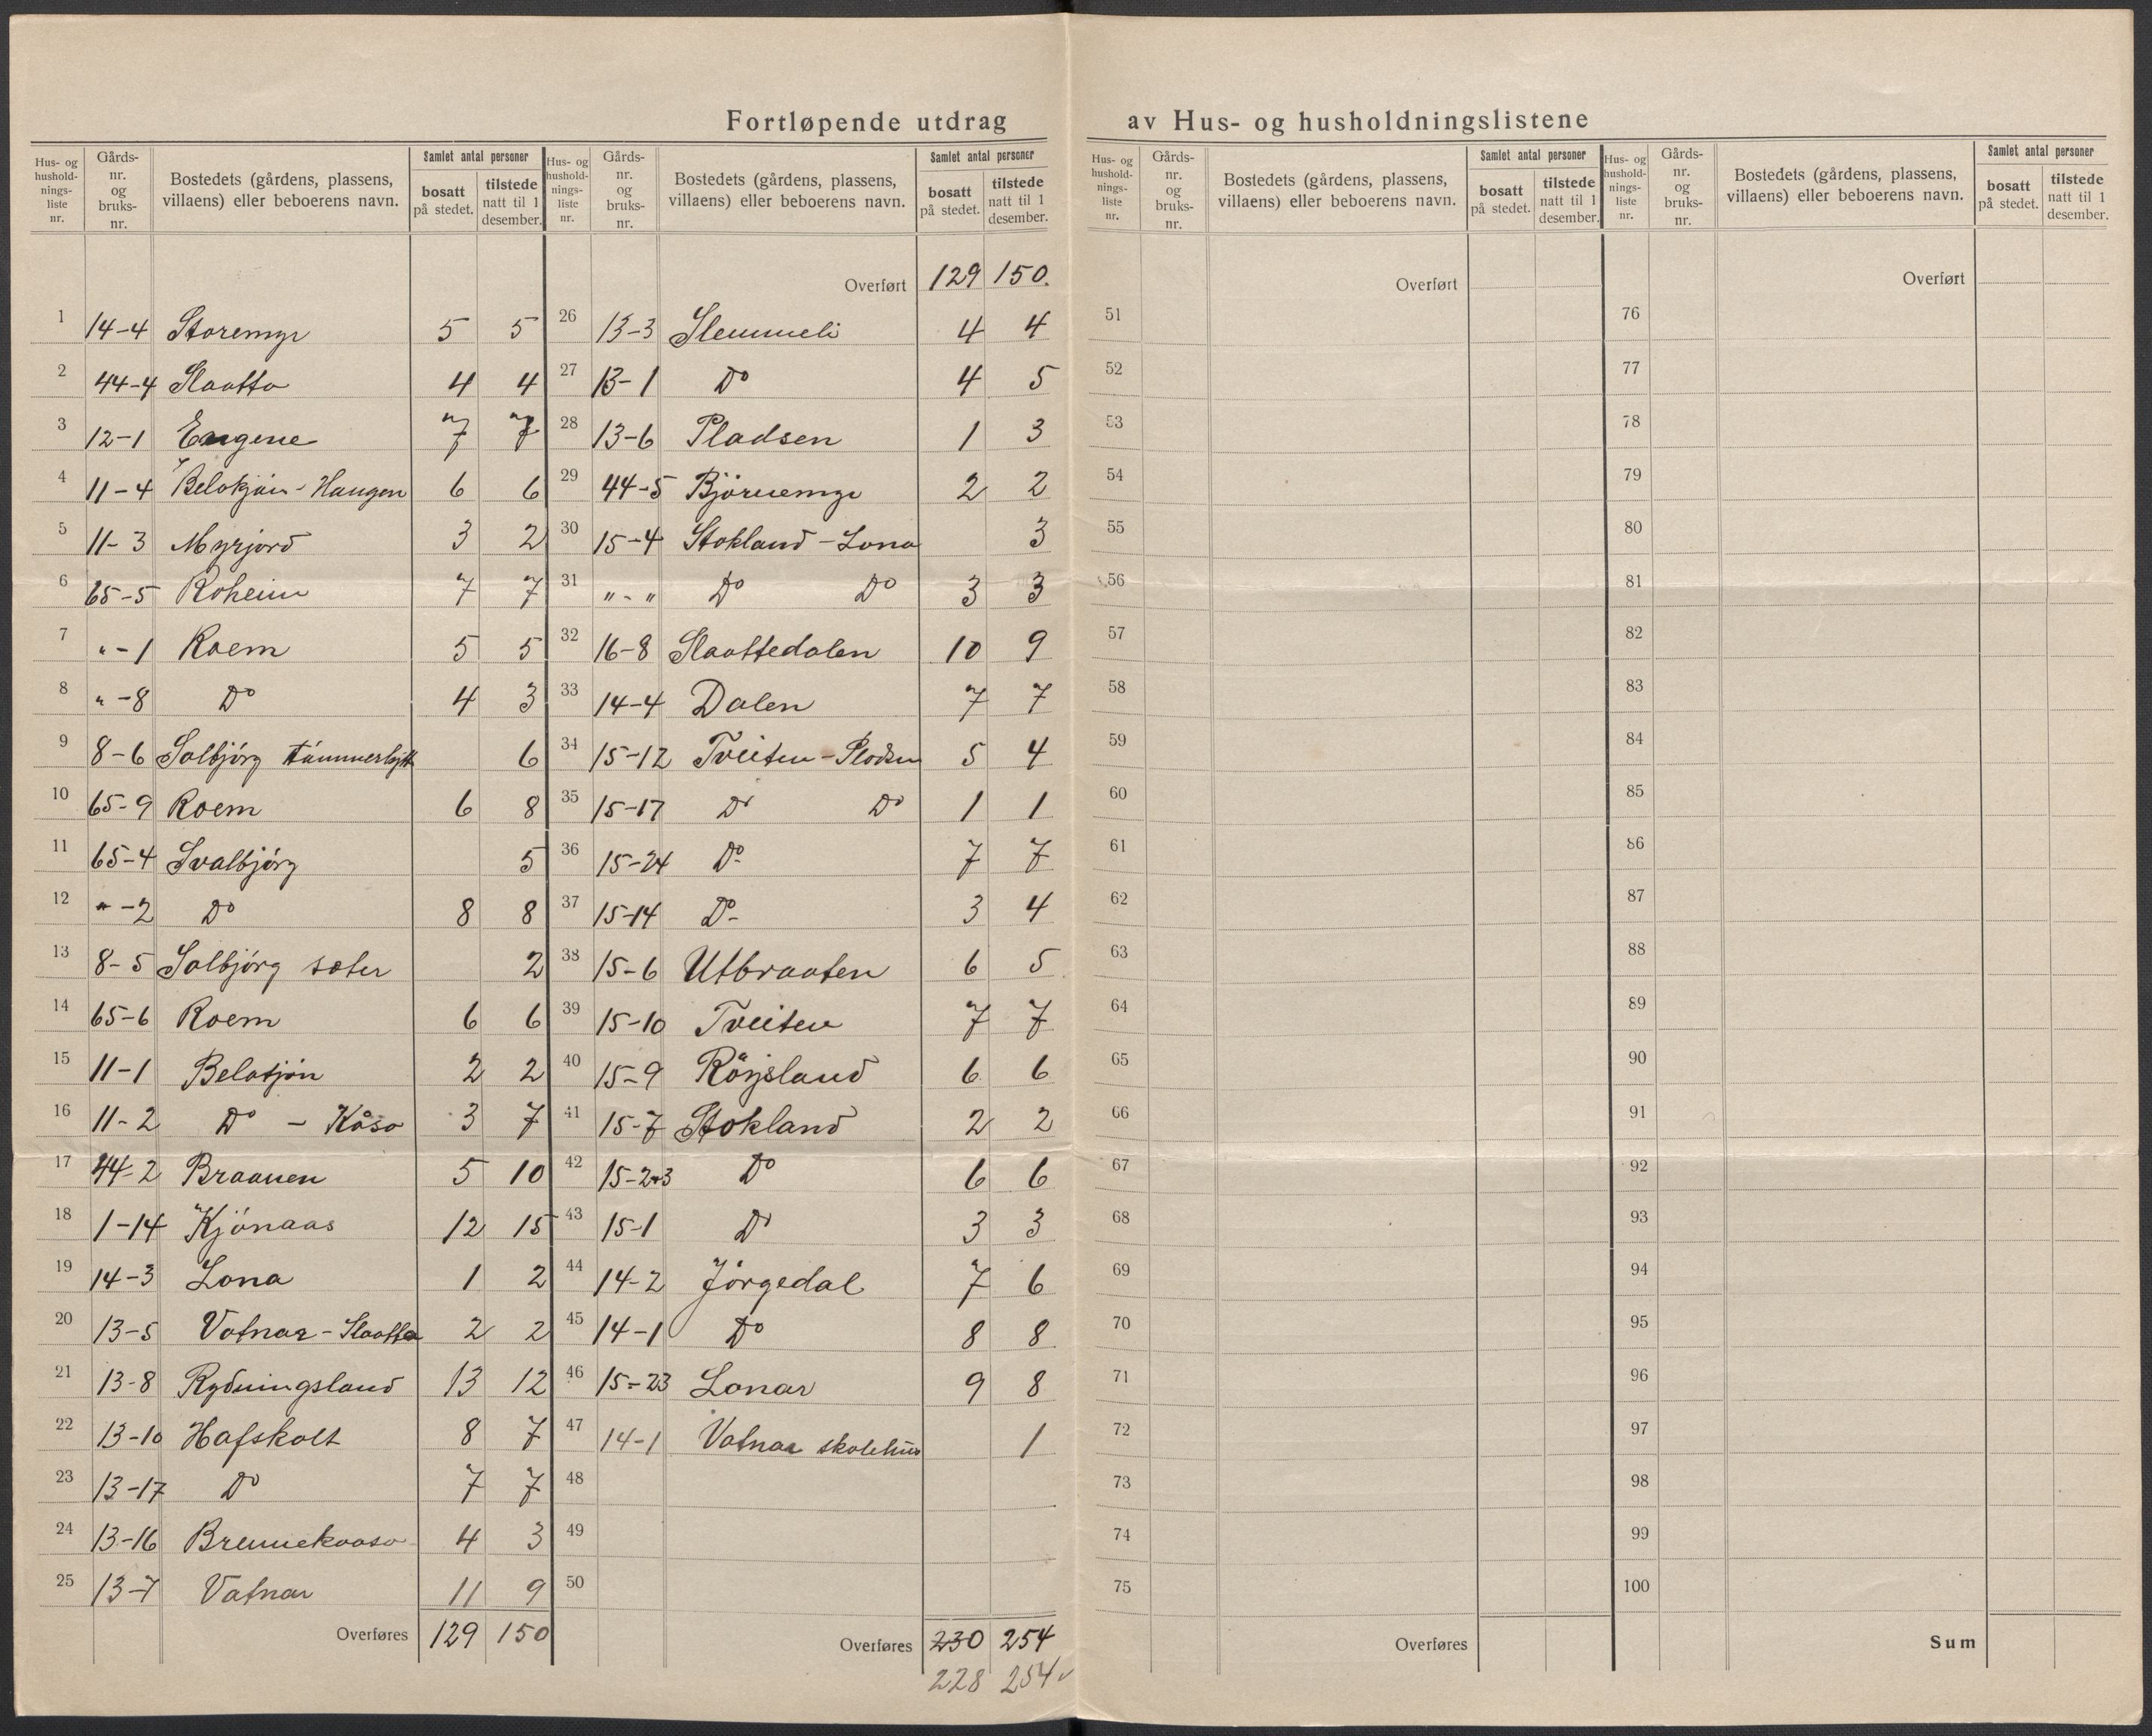 Fortløpende utdrag av Hus- og husholdningslistene
Hus- og hushold-nings-liste nr. Gårds-nr. og bruks-nr. Bostedets (gårdens, plassens, villaens) eller beboerens navn. Samlet antal personer bosatt på stedet. tilstede natt til 1 desember.
1 14-4 Storemyr 5 5
2 44-4 Slaatta 4 4
3 12-1 Engene 7 7
4 11-4 Haugen 6 6
5 11-3 Myrjord 3 2
6 65-5 Roheim 7 7
7 "-1 Roem 5 5
8 "-8 Do 4 3
9 8-6 Solbjörg 6
10 65-9 Roem 6 8
11 65-4 Svalbjörg 5
12 "-2 Do 8 8
13 8-5 Solbjörg sæter 2
14 65-6 Roem 6 6
15 11-1 Belatjón 2 2
16 11-2 Do - Kåsa 3 7
17 44-2 Braanen 5 10
18 1-14 Kjónaas 12 15
19 14-3 Lona 1 2
20 13-5 Vatnar-Slaatta 2 2
21 13-8 Rydningsland 13 12
22 13-10 Hafskolt 8 7
23 13-17 Do 7 7
24 13-16 Brennekaasa 4 3
25 13-7 Vatnar 11 9
Overføres 129 150
Hus- og hushold-nings-liste nr. Gårds-nr. og bruks-nr. Bostedets (gårdens, plassens, villaens) eller beboerens navn. Samlet antal personer bosatt på stedet. tilstede natt til 1 desember.
Overført 129 150.
26 13-3 Slemmeli 4 4
27 13-1 Do 4 5
28 13-6 Pladsen 1 3
29 44-5 Björnemyr 2 2
30 15-4 Stokland-Lona 3
31 "-" Do Do 3 3
32 16-8 Slaattedalen 10 9
33 14-4 Dalen 7 7
34 15-12 Tveiten-Pladsen 5 4
35 15-17 Do Do 1 1
36 15-24 Do 7 7
37 15-14 Do 3 4
38 15-6 Utbraaten 6 5
39 15-10 Tveiten 7 7
40 15-9 Röysland 6 6
41 15-7 Stokland 2 2
42 15-2+3 Do 6 6
43 15-1 Do 3 3
44 14-2 Jörgedal 7 6
45 14-1 Do 8 8
46 15-23 Lonar 9 8
47 14-1 Vatnar skolehus 1
48
49
50
Overføres 230 254
228 254
Hus- og hushold-nings-liste nr. Gårds-nr. og bruks-nr. Bostedets (gårdens, plassens, villaens) eller beboerens navn. Samlet antal personer bosatt på stedet. tilstede natt til 1 desember.
Overført
51
52
53
54
55
56
57
58
59
60
61
62
63
64
65
66
67
68
69
70
71
72
73
74
75
Overføres
Hus- og hushold-nings-liste nr. Gårds-nr. og bruks-nr. Bostedets (gårdens, plassens, villaens) eller beboerens navn. Samlet antal personer bosatt på stedet. tilstede natt til 1 desember.
Overført
76
77
78
79
80
81
82
83
84
85
86
87
88
89
90
91
92
93
94
95
96
97
98
99
100
Sum